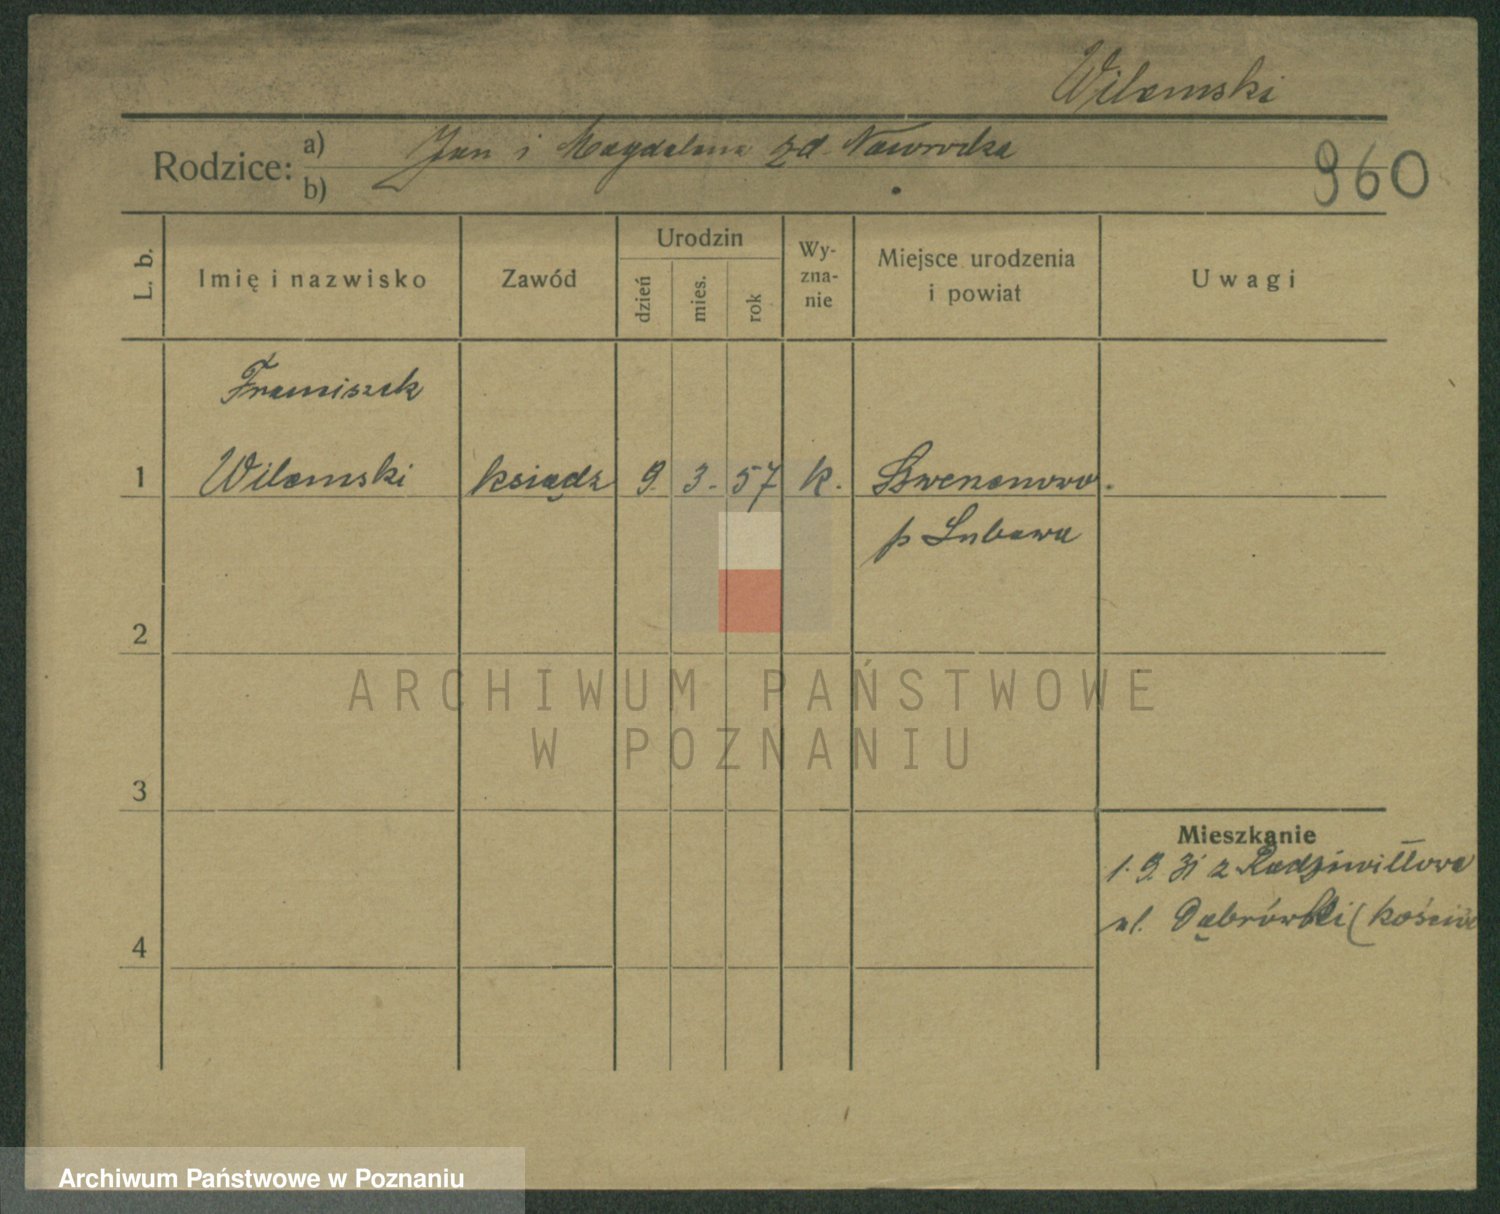 Wilemski
Rodzice: a) Jan i Magdalena zd. Nawrocka
b)
960
L. b.
Imię i nazwisko
Zawód
Urodzin
dzień
mies.
rok
Wy-
zna-
nie
Miejsce urodzenia
i powiat
Uwagi
Franciszek
1 Wilemski ksiądz 9. 3. 57 k.
p Lubawa
2
3
4
Mieszkanie
1. 9. 31 z Radziwiłłowa
ul. Dąbrówki (kości
ARCHIWUM PAŃSTWOWE
W POZNANIU
Archiwum Państwowe w Poznaniu